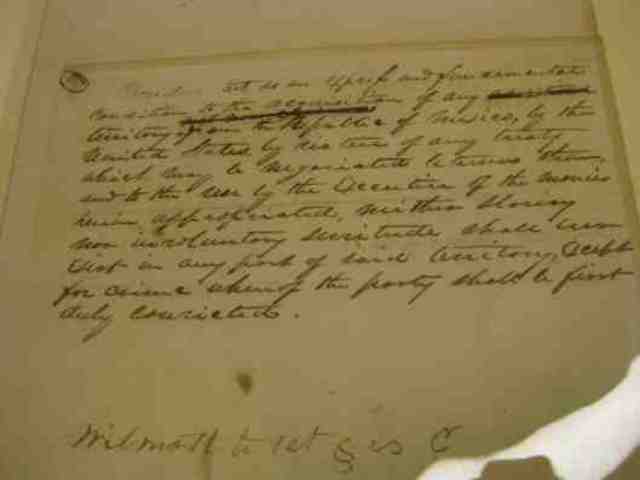 Provided that as an express and fundamental
condition to the acquisition of any
territory from the Republic of Mexico, by the
United States by virtue of any treaty
which may be negotiated between them,
and to the use by the Executive of the monies
herein appropriated, neither slavery
nor involuntary servitude shall ever
exist in any part of said territory, except
for crime whereof the party shall be first
duly convicted.
Wilmot to 1st § is C